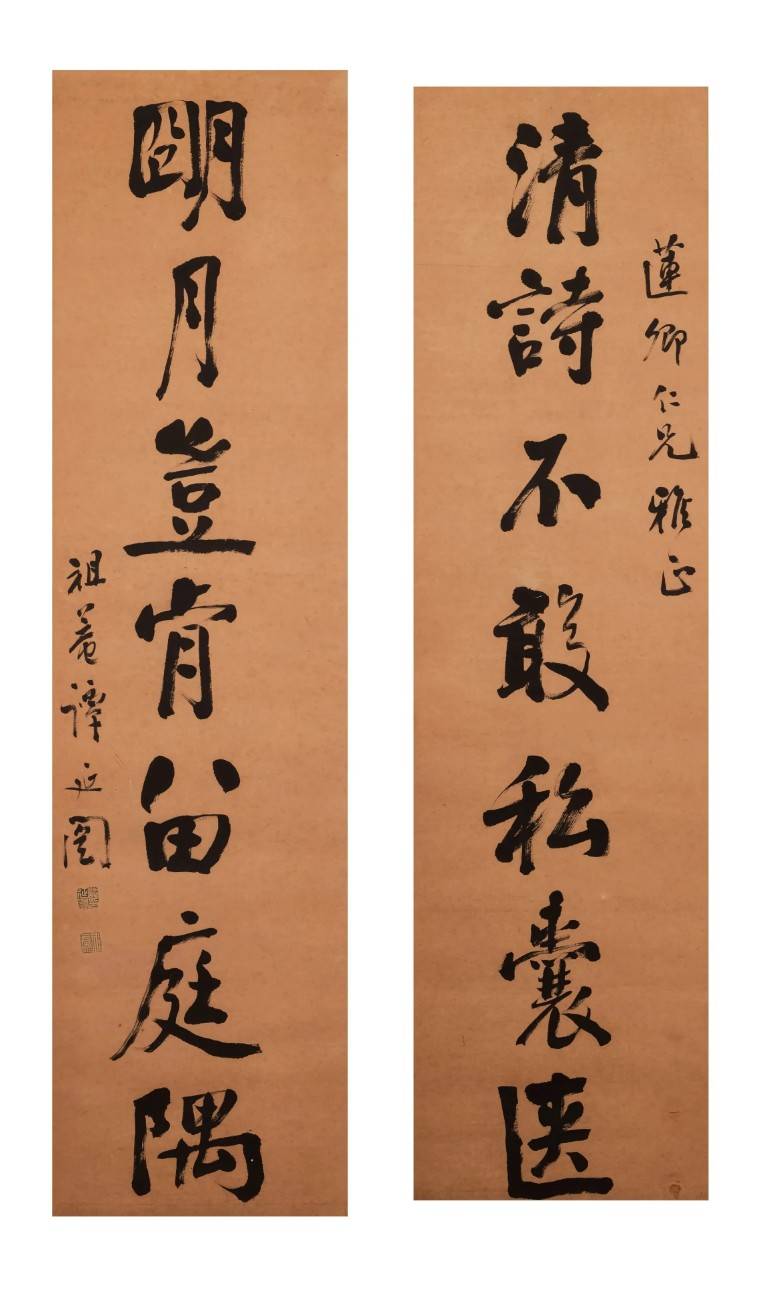 蓮卿仁兄雅正
清詩不敢私囊匧
朙月豈肯留庭隅
祖菴譚延闓